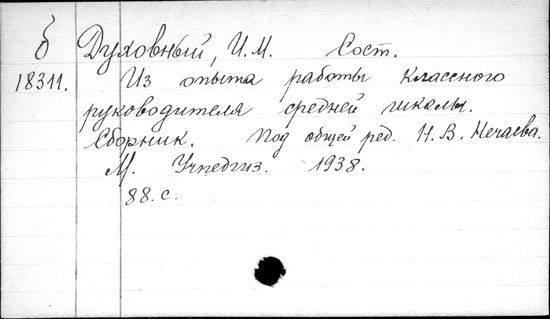 б Духовный, И.М. Сост.
18311. Из опыта работы классного
руководителя средней школы.
Сборник. Под общей ред. Н.В. Нечаева.
М. Учпедгиз. 1938.
88.с.